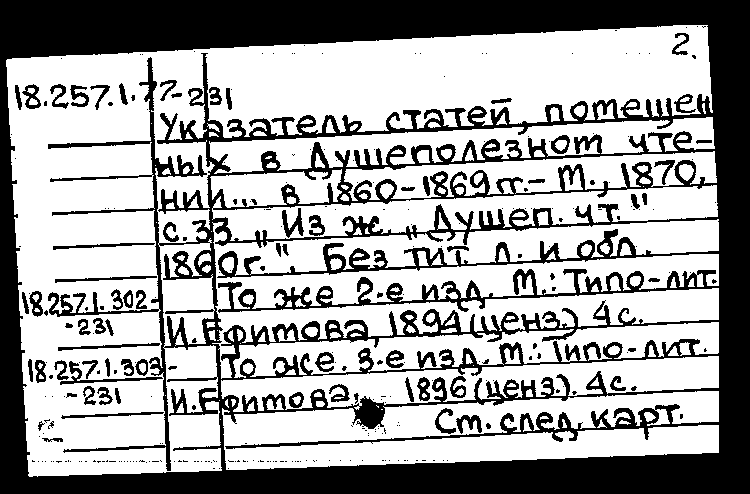 2.
18.257.1.77-231
Указатель статей, помещен
ных в Душеполезном чте-
нии... в 1860-1869 гг.- М., 1870,
с.33. „Из ж. „Душеп. чт."
1860г.". Без тит. л. и обл.
18.257.1.302- То же 2-е изд. М.: Типо-лит.
-231 И.Ефимова, 1894 (ценз.). 4с.
18.257.1.303- То же. 3-е изд. М.: Типо-лит.
-231 И.Ефимова, 1896 (ценз.). 4с.
См. след. карт.